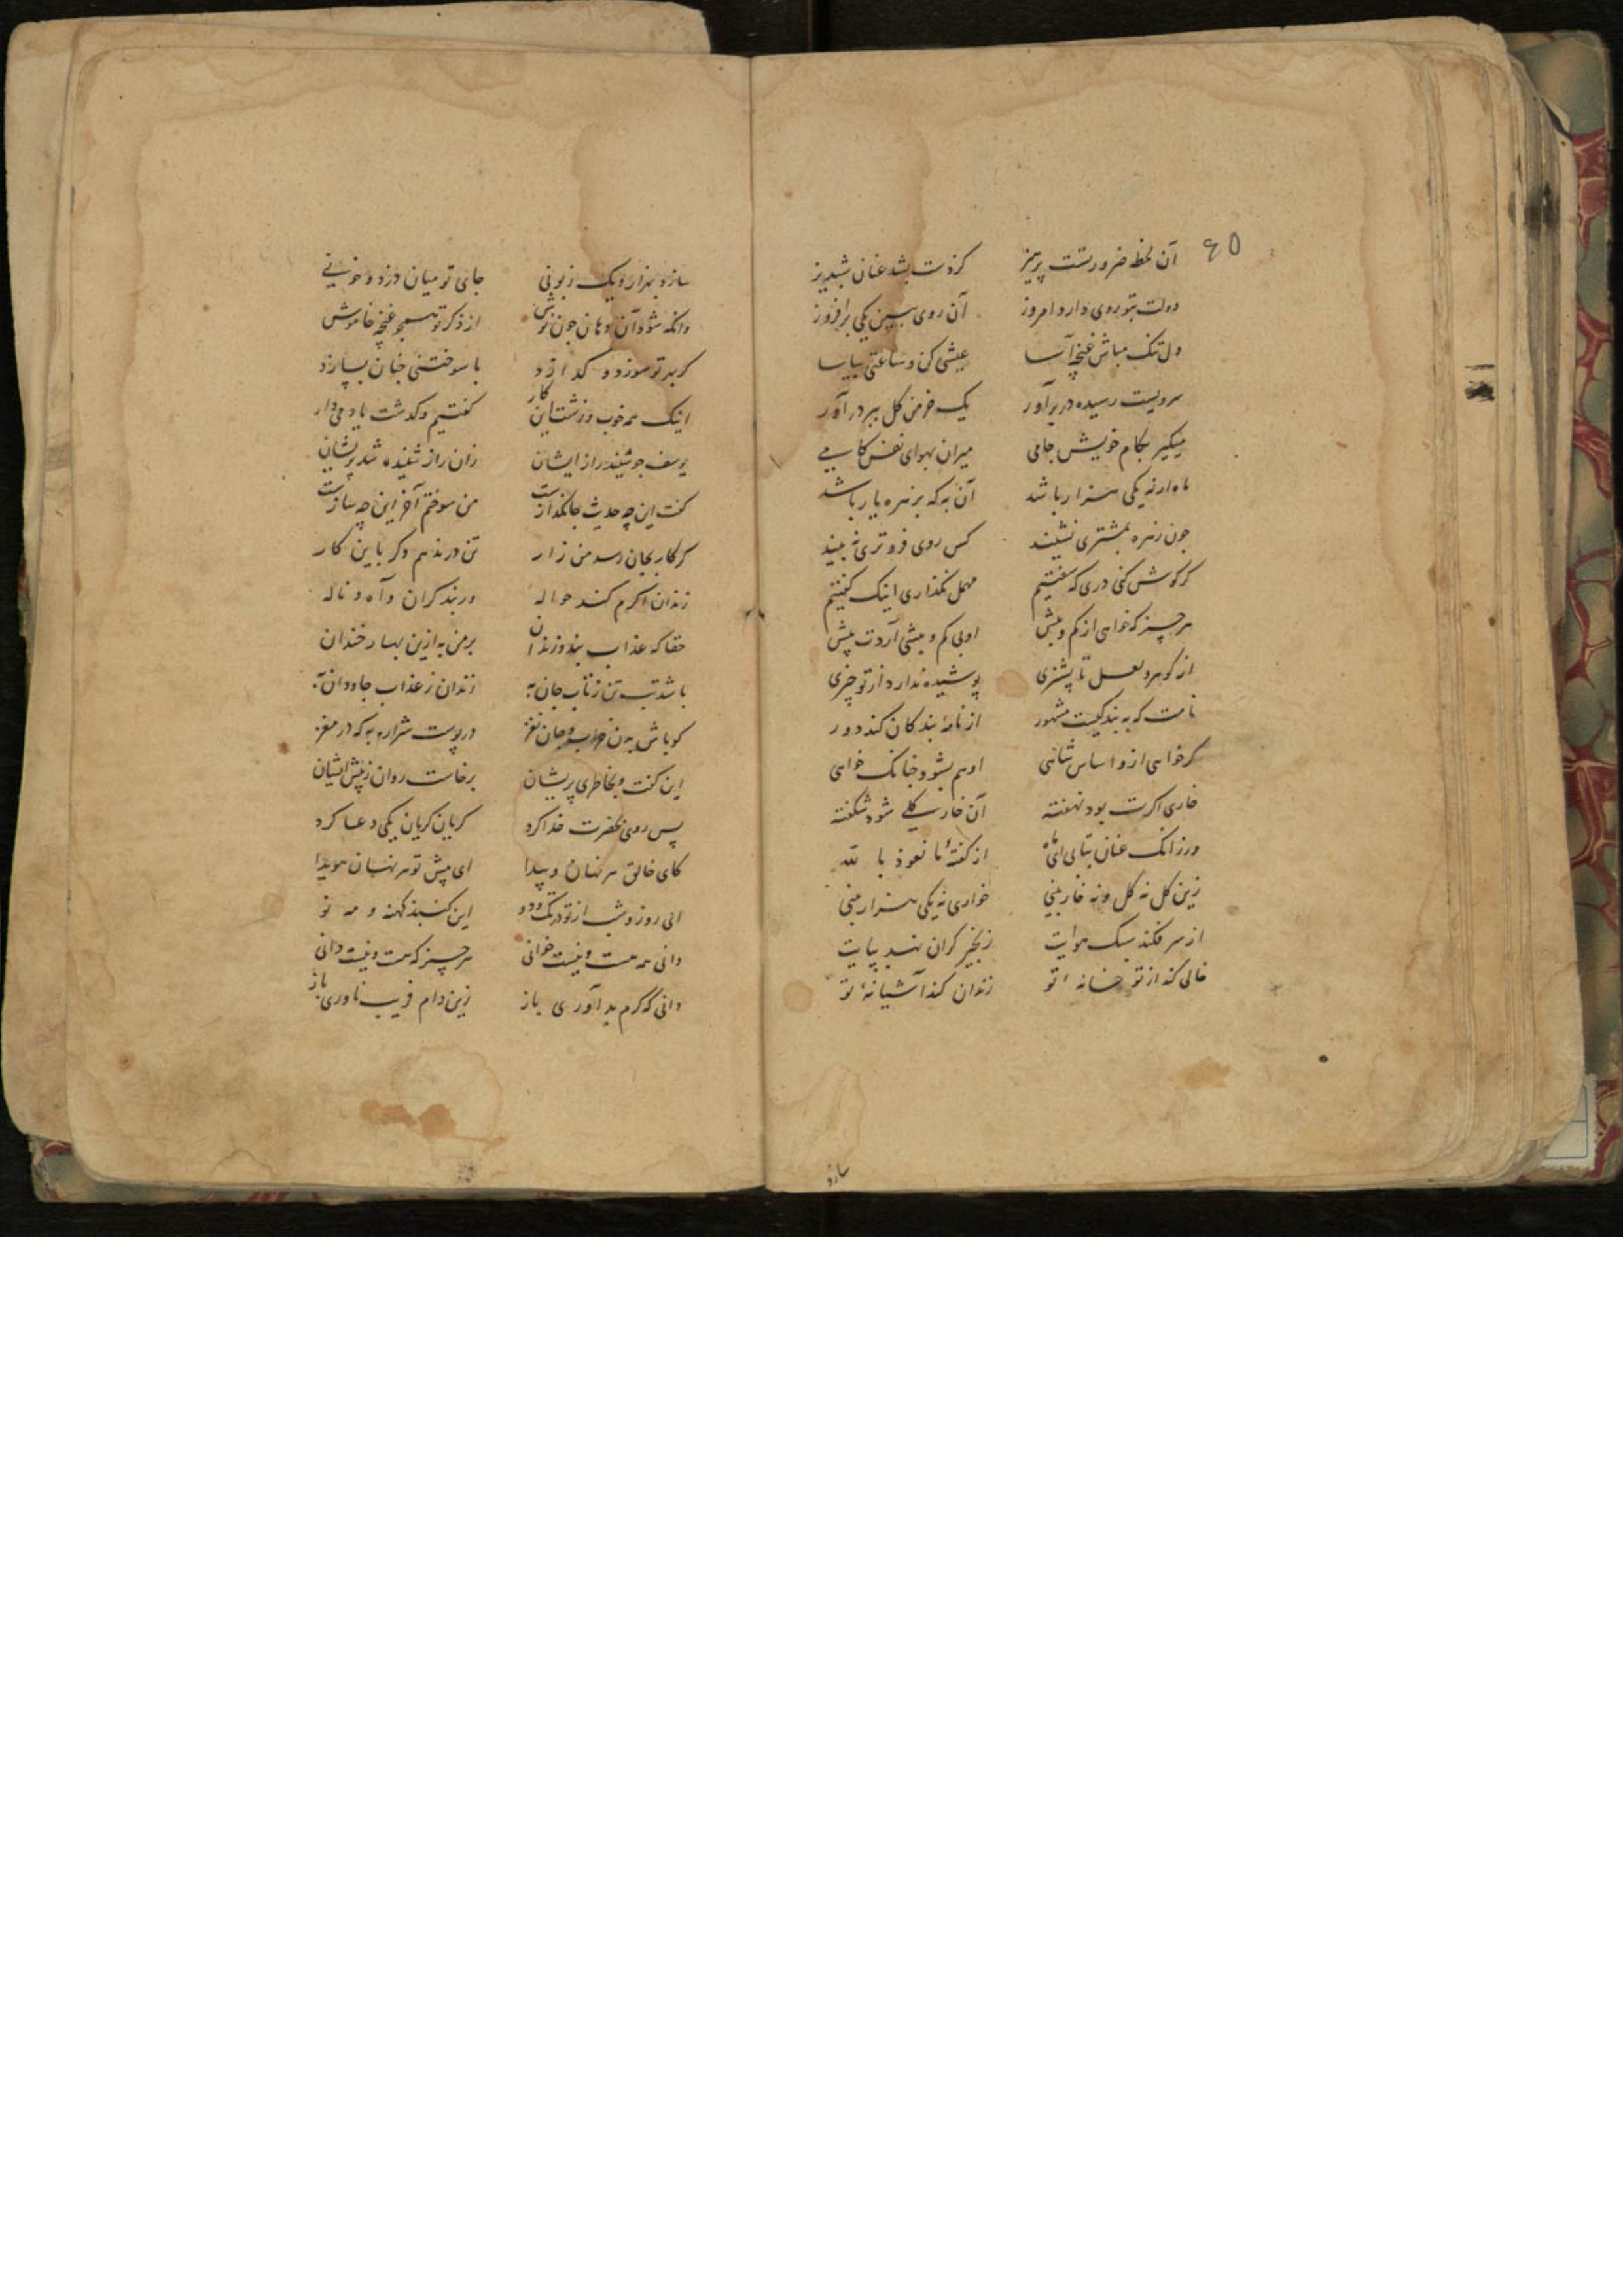 ۶۵
آن لحظه ضرورتست پرهیز کز دست بشد عنان شبدیز
دولت بتو روی دارد امروز آن روی ببین یکی برافروز
دل تنک مباش غنچه آسا عیشی کن و ساعتی بیاسا
سرویست رسیده در برآور یک خرمن کل ببر درآور
میکیر بکام خویش جامی میران بهوای نفس کامی
ماه ارنه یکی هزار باشد آن به که بزهره یار باشد
چون زهره بمشتری نشیند کس روی فروتری نه بیند
کر کوش کنی دری که سفتیم مهمل نکذاری اینک کفتیم
هرچیز که خواهی از کم و بیش او بی کم و بیشی آردت پیش
از کوهر و لعل تا پشیزی پوشیده ندارد از تو چیزی
نامت که به بندکیست مشهور از نامهٔ بندکان کند دور
کر خواهی ازو اساس شاهی او هم بشود چنانک خواهی
خاری اکرت بود نهفته آن خار کلی شود شکفته
ورزانک عنان بتابی ای ماه از کفتهٔ ما نعوذ بالله
زین کل نه کل و نه خار بینی خواری نه یکی هزار بینی
از سر فکند سبک هوایت زنجیر کران نهد بپایت
خالی کند از تو خانهٔ تو زندان کند آشیانهٔ تو
سازد
سازد بهزار و یک زبونی جای تو میان دزد و خونی
وانکه شود آن دهان چون نوش از ذکر تو همچو غنچه خاموش
کر بهر تو سوزد و کدازد با سوختنی چنان بسازد
اینک همه خوب و زشت این کار کفتیم و کذشت یاد میدار
یوسف چو شنید راز ایشان زان راز شنیده شد پریشان
کفت این چه حدیث جانکدازست من سوختم آخر این چه سازست
کر کار بجان رسد من زار تن درندهم دکر باین کار
زندان اکرم کند حواله در بند کران و آه و ناله
حقا که عذاب بند و زندان بر من به ازین بهار خندان
باشد تب تن ز تاب جان به زندان ز عذاب جاودان به
کو باش بدن خراب و جان نغز در پوست شراره به که در مغز
این کفت و بخاطری پریشان برخاست روان ز پیش ایشان
پس روی بحضرت خدا کرد کریان کریان یکی دعا کرد
کای خالق هر نهان و پیدا ای پیش تو هر نهان هویدا
ای روز و شب از تو در تک و دو این کنبد کهنه و مه نو
دانی همه هست و نیست خوانی هرچیز که هست و نیست دانی
دانی که کرم بد آوری باز زین دام فریب ناوری باز